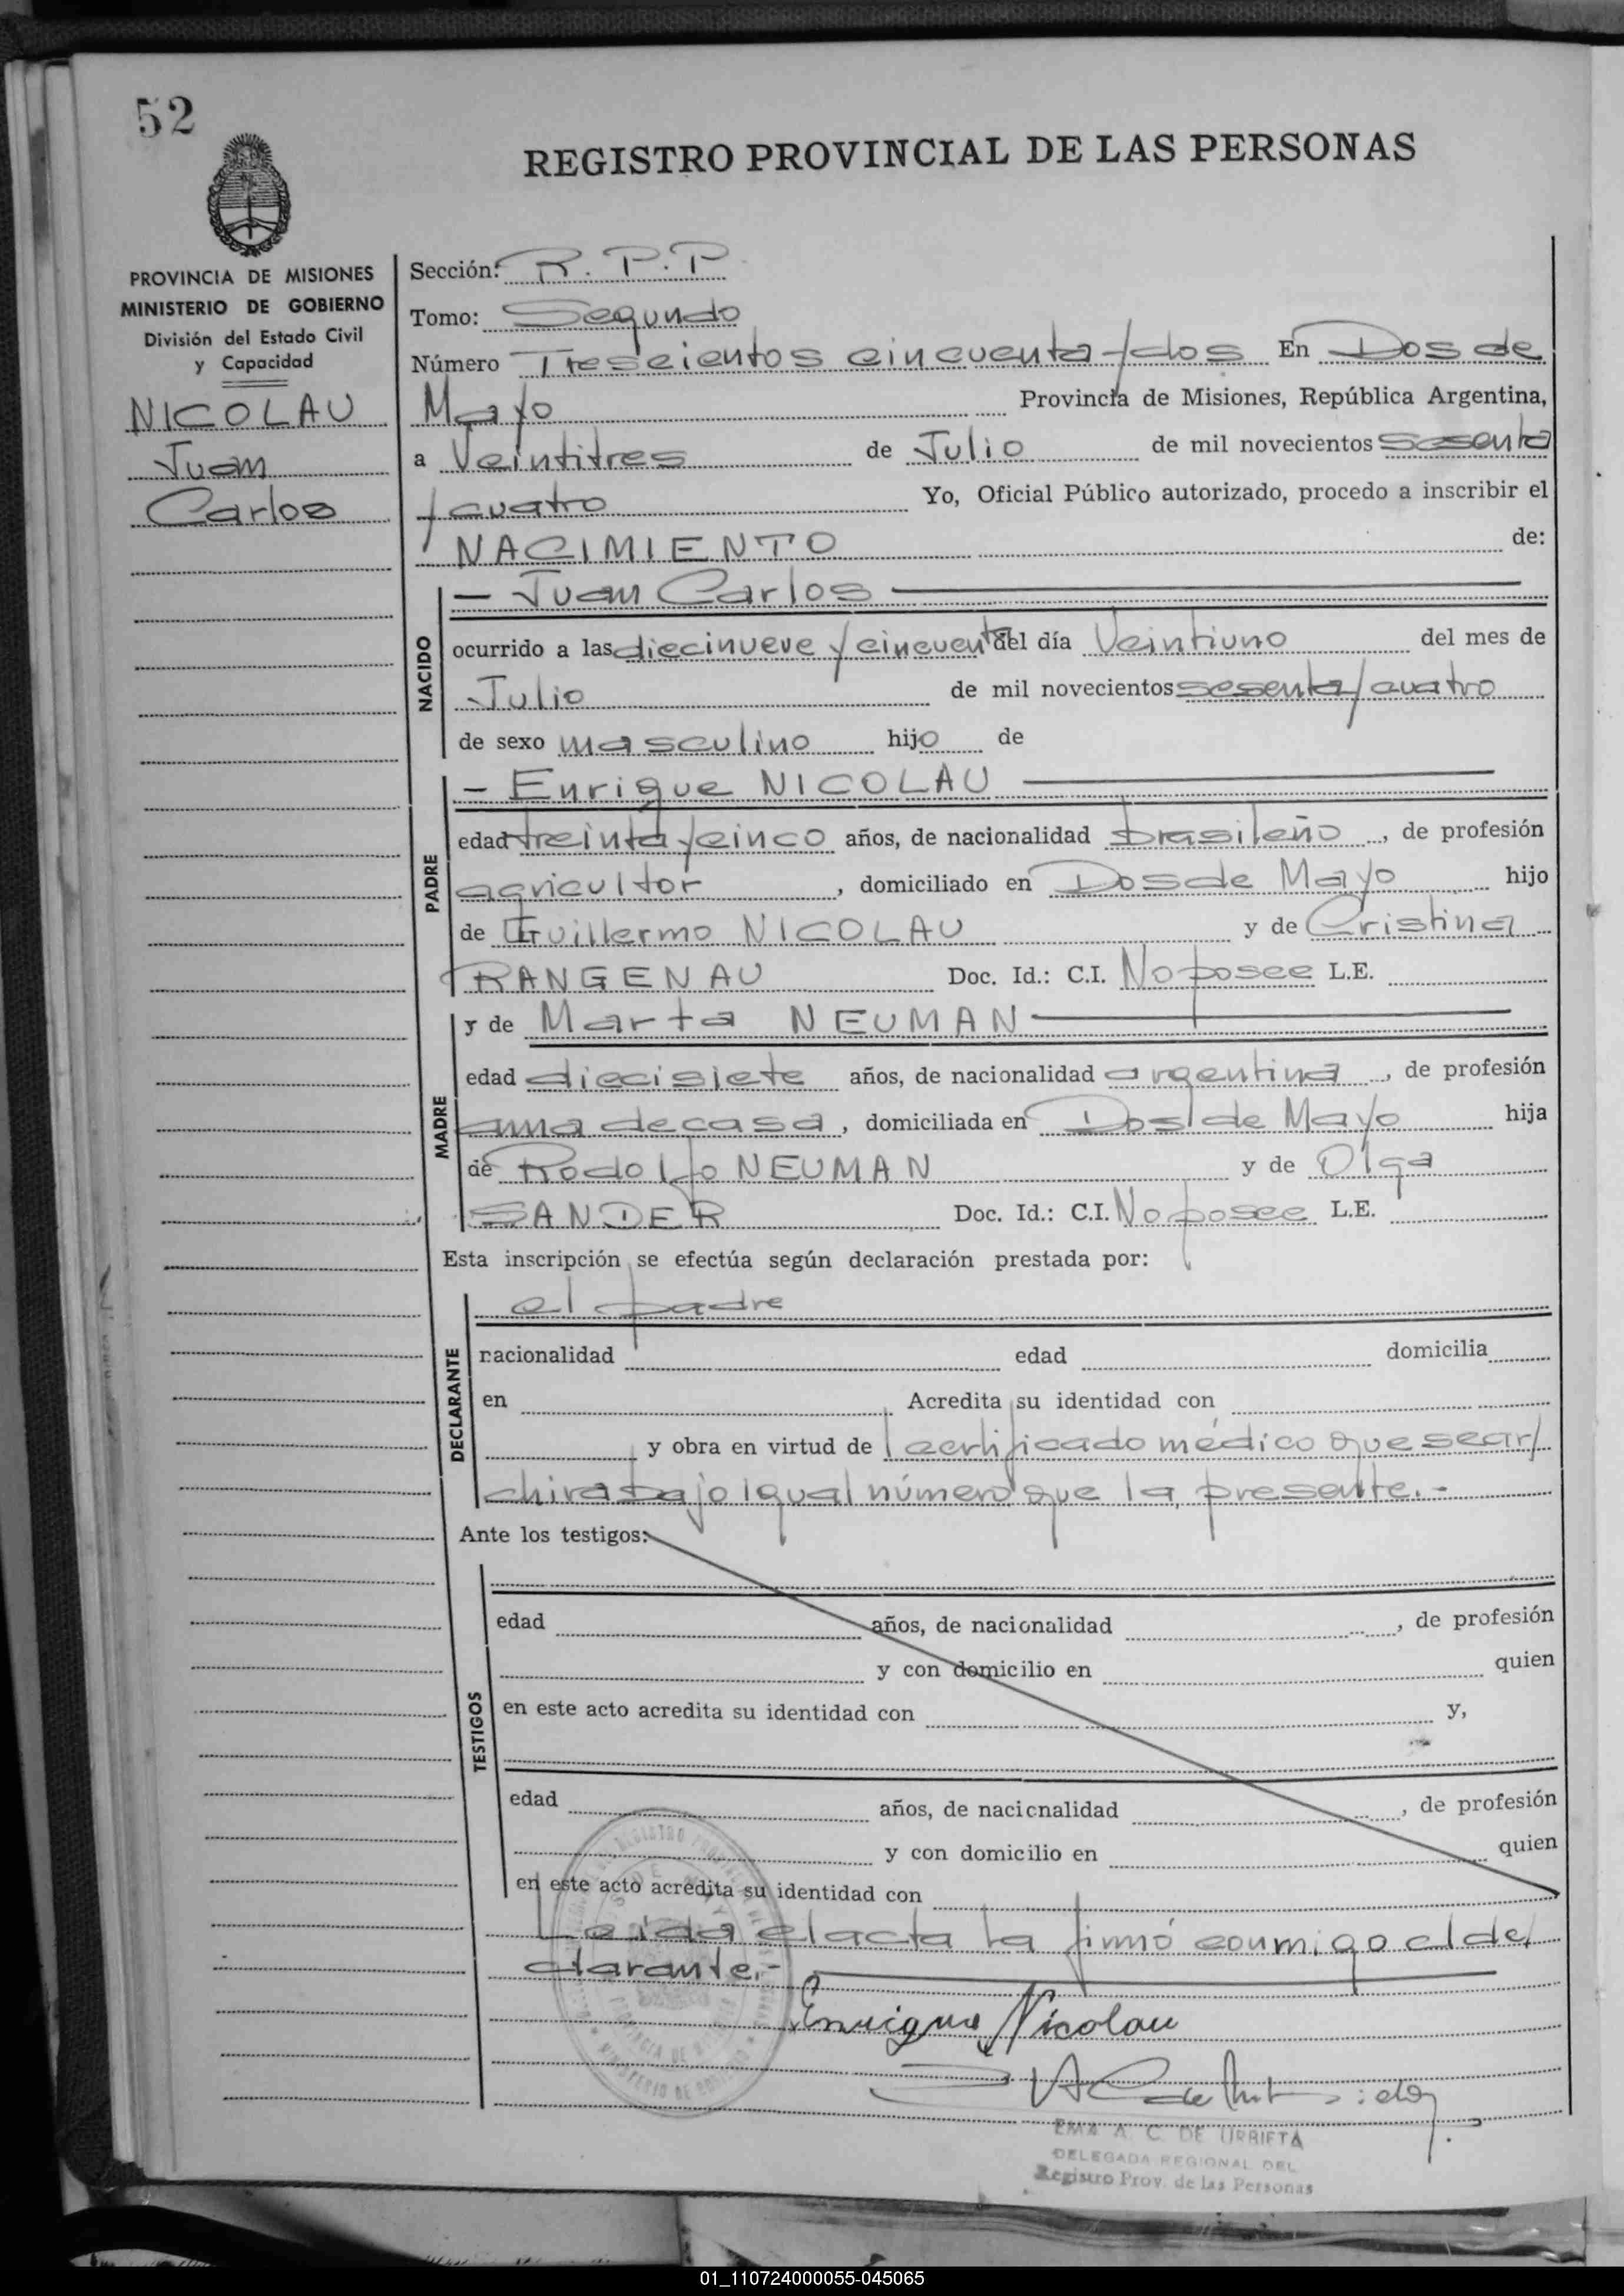 52
REGISTRO PROVINCIAL DE LAS PERSONAS
PROVINCIA DE MISIONES
MINISTERIO DE GOBIERNO
División del Estado Civil
y Capacidad
NICOLAU
Juan
Carlos
Sección: R. P. P
Tomo: Segundo
Número Trescientos cincuenta y dos En Dos de
Mayo Provincia de Misiones, República Argentina,
a Veintitres de Julio de mil novecientos sesenta
y cuatro Yo, Oficial Público autorizado, procedo a inscribir el
NACIMIENTO de:
NACIDO
— Juan Carlos —
ocurrido a las diecinueve y cincuenta del día Veintiuno del mes de
Julio de mil novecientos sesenta y cuatro
de sexo masculino hijo de
PADRE
- Enrique NICOLAU —
edad treinta y cinco años, de nacionalidad brasileño, de profesión
agricultor, domiciliado en Dos de Mayo hijo
de Guillermo NICOLAU y de Cristina
RANGENAU Doc. Id.: C.I. No posee L.E.
MADRE
y de Marta NEUMAN —
edad diecisiete años, de nacionalidad argentina, de profesión
ama de casa, domiciliada en Dos de Mayo hija
de Rodolfo NEUMAN y de Olga
SANDER Doc. Id.: C.I. No posee L.E.
Esta inscripción se efectúa según declaración prestada por:
DECLARANTE
el padre
nacionalidad edad domicilia
en Acredita su identidad con
y obra en virtud de certificado médico que se ar/
chiva bajo igual número que la presente.-
Ante los testigos:
TESTIGOS
edad años, de nacionalidad , de profesión
y con domicilio en quien
en este acto acredita su identidad con y,
edad años, de nacionalidad , de profesión
y con domicilio en quien
en este acto acredita su identidad con
Leida el acta la firmó conmigo el de/
clarante.-
Enrique Nicolau
EMA A. C. DE URRIETA
DELEGADA REGIONAL DEL
Registro Prov. de las Personas
01_110724000055-045065